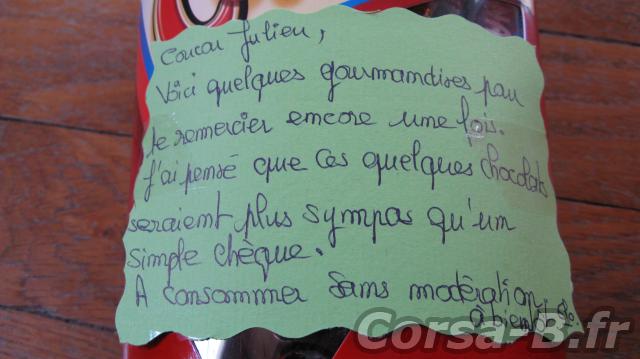 Coucou Julien,
Voici quelques gourmandises pour
te remercier encore une fois.
J'ai pensé que ces quelques chocolats
seraient plus sympas qu'un
simple chèque.
A consommer sans modération,
à bientôt
Corsa-B.fr